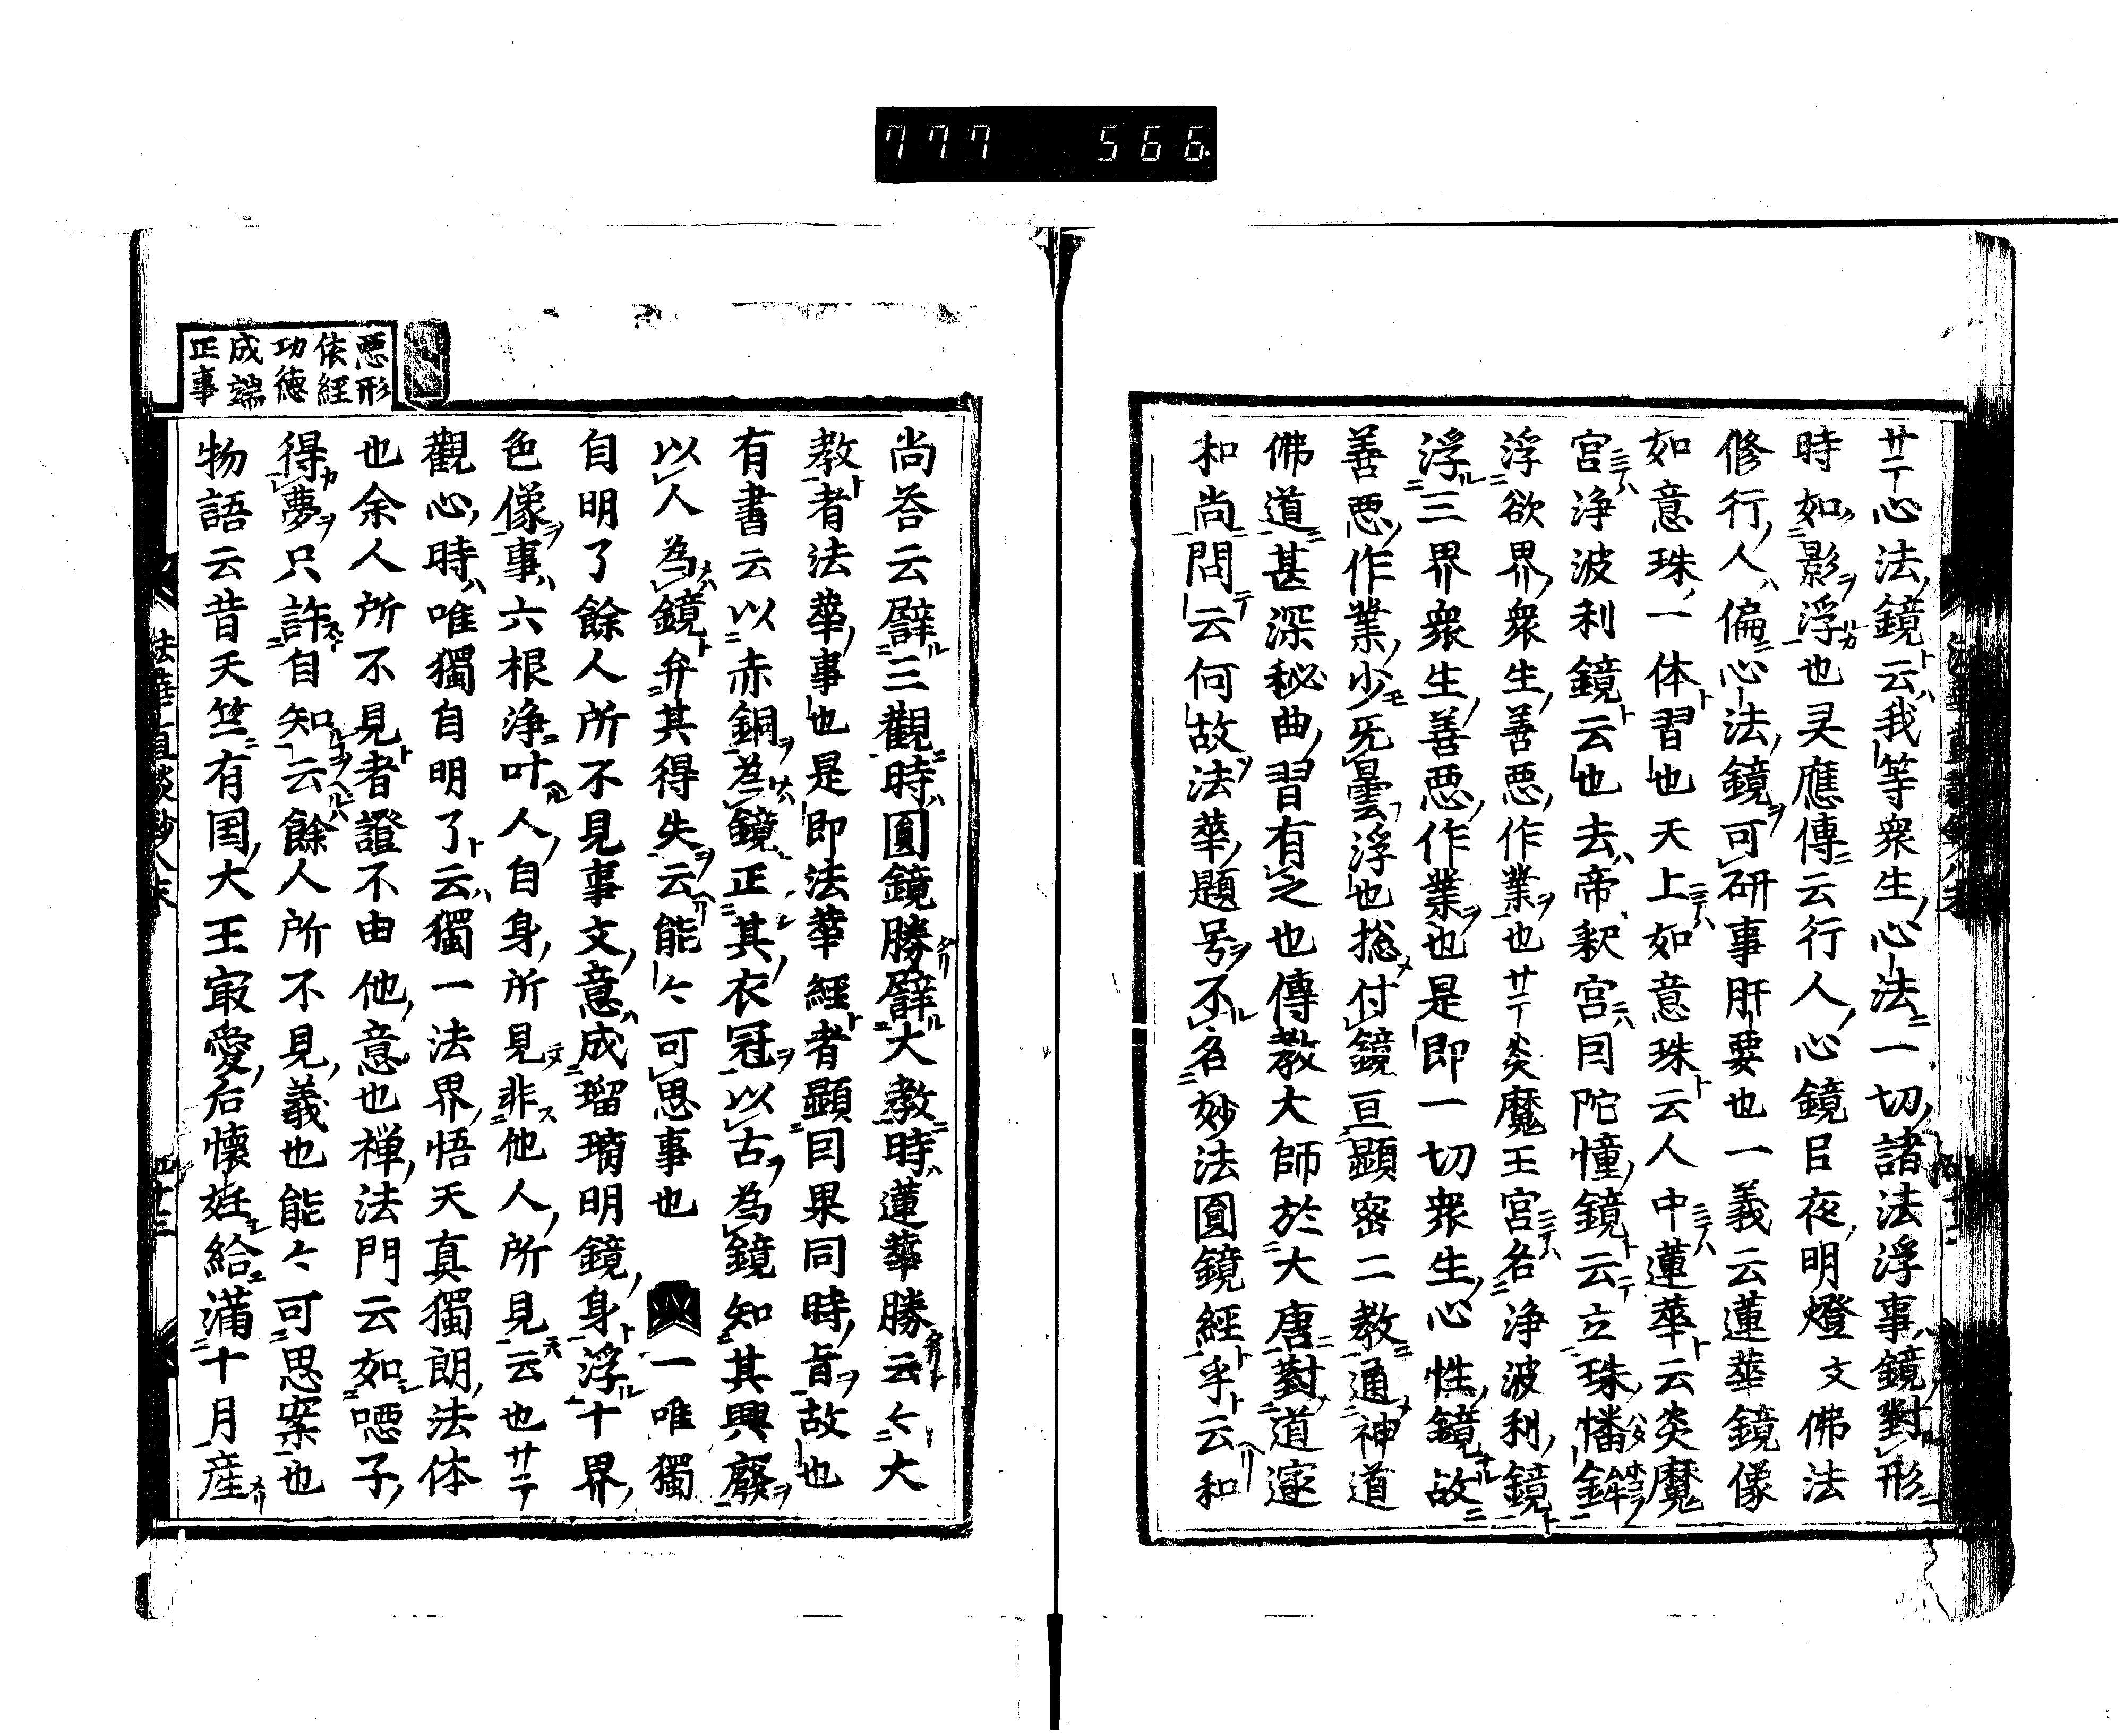 777 566
廿丁心法鏡云我等衆生心法一切諸法浮事鏡對形
時如影浮也灵應傳云行人心鏡㠯夜明燈文佛法
修行人偏心法鏡可研事肝要也一義云蓮華鏡像
如意珠一体習也天上如意珠云人中蓮華云炎魔
宮浄波利鏡云也去帝釈宮因陀憧鏡云立珠幡鉾
浮欲界衆生善悪作業也廿丁炎魔王宮名浄波利鏡
浮三界衆生善悪作業也是即一切衆生心性鏡故
善悪作業少旡曇浮也捴付鏡亘顕密二教通神道
佛道甚深秘曲習有之也傳教大師於大唐對道邃
和尚問云何故法華題号不名妙法圓鏡經乎云和
尚荅云譬三觀時圓鏡勝譬大教時蓮華勝云云大
教者法華事也是即法華經者顕因果同時旨故也
有書云以赤銅為鏡正其衣冠以古為鏡知其興廢
以人為鏡弁其得失云能々可思事也 一唯獨
自明了餘人所不見事文意成瑠璃明鏡身浮十界
色像事六根浄叶人自身所見非他人所見云也廿丁
觀心時唯獨自明了云獨一法界悟天真獨朗法体
也余人所不見者證不由他意也禅法門云如啞子
得夢只許自知云餘人所不見義也能々可思案也
物語云昔天竺有国大王㝡愛后懐妊給満十月産
悪形
依經
功徳
成端
正事
法華直談鈔八末 四十三